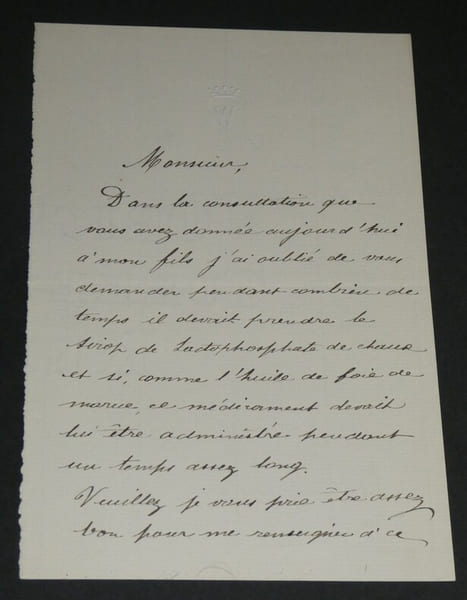 Monsieur,
Dans la consultation que
vous avez donnée aujourd'hui
à mon fils j'ai oublié de vous
demander pendant combien de
temps il devait prendre le
sirop de Lactophosphate de chaux
et si, comme l'huile de foie de
morue, ce médicament devait
lui être administré pendant
un temps assez long.
Veuillez je vous prie être assez
bon pour me renseigner à ce